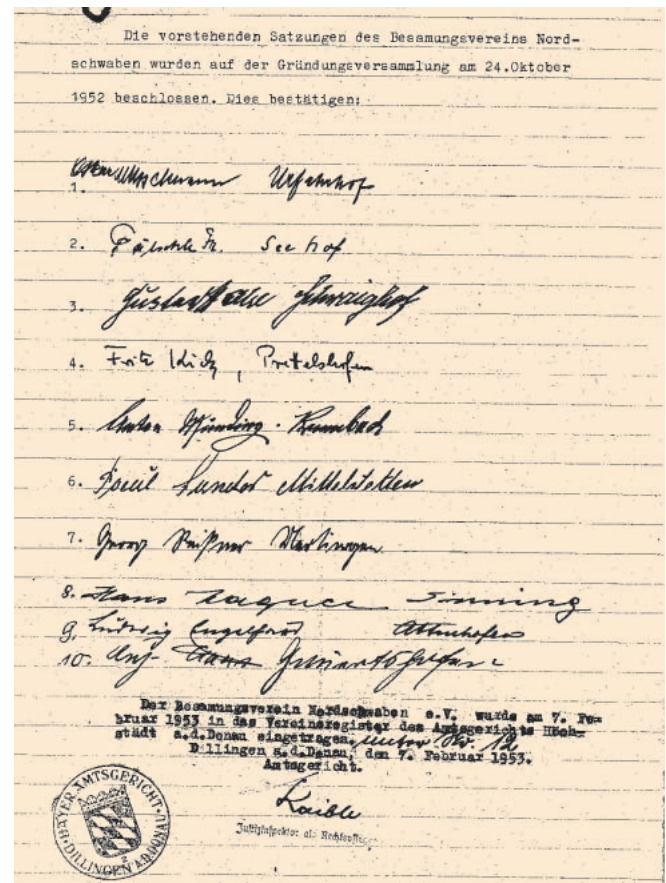 Die vorstehenden Satzungen des Besamungsvereins Nord-
schwaben wurden auf der Gründungsversammlung am 24.Oktober
1952 beschlossen. Dies bestätigen:
1.
2. Fr. Seehof
3. Gustav
4. Fritz Kick, Prettelshofen
5. Anton Münding
6. Paul Sander Mittelstetten
7. Georg Meißner Mertingen
8. Hans Wagner Sinning
9. Ludwig Engelhard Attenhofen
10.
Der Besamungsverein Nordschwaben e.V. wurde am 7. Fe-
bruar 1953 in das Vereinsregister des Amtsgerichts Höch-
städt a.d.Donau eingetragen, unter Nr. 12
Dillingen a.d.Donau, den 7. Februar 1953.
Amtsgericht.
Kaible
Justizinspektor als Rechtspfleger
BAYER. AMTSGERICHT
DILLINGEN A.D. DONAU